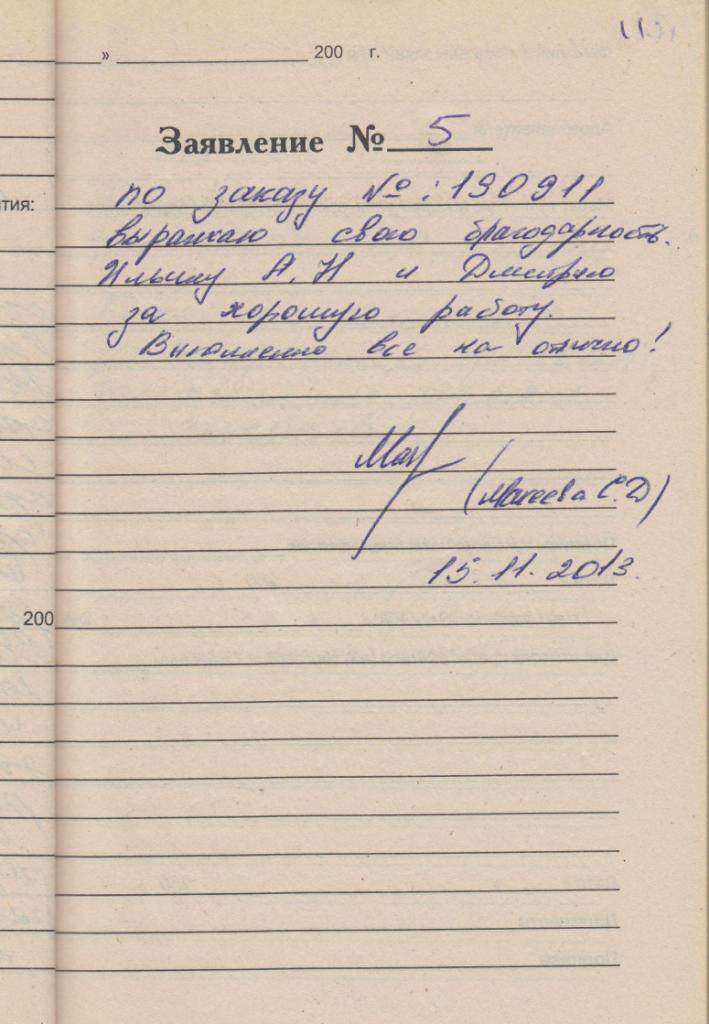 » 200 г.
Заявление № 5
тия:
по заказу №: 190911
выражаю свою благодарность.
Ильину А.Н и Дмитрию
за хорошую работу.
Выполнено все на отлично!
(Макеева С.Д)
15.11.2013.
200